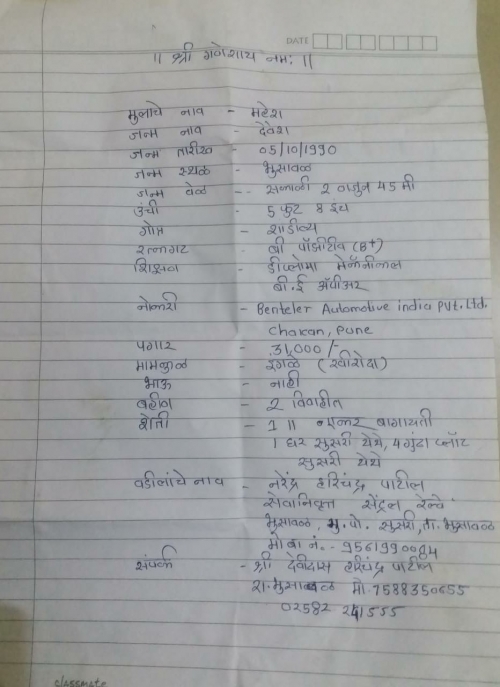 DATE
॥ श्री गणेशाय नमः ॥
मुलाचे नाव - महेश
जन्म नाव - देवेश
जन्म तारीख - 05/10/1990
जन्म स्थळ - भुसावळ
जन्म वेळ -- सकाळी 2 वाजुन 45 मी
उंची - 5 फुट 8 इंच
गोत्र - शांडील्य
रक्तगट - बी पॉझीटीव (B+)
शिक्षण - डीप्लोमा मेकॅनीकल
बी.ई अॅपीअर
नोकरी - Benteler Automotive india Pvt. Ltd.
Chakan, Pune
पगार - 31,000/-
मामकुळ - इंगळे (खीरोदा)
भाऊ - नाही
बहीण - 2 विवाहीत
शेती - 1॥ एक्कर बागायती
1 घर सुसरी येथे, 4 गुंठा प्लॉट
सुसरी येथे
वडीलांचे नाव - नरेंद्र हरिचंद्र पाटील
सेवानिवृत्त सेंट्रल रेल्वे
भुसावळ, मु.पो. सुसरी, ता. भुसावळ
मो बा नं. - 9561990084
संपर्क - श्री देवीदास हरिचंद्र पाटील
रा. भुसावळ मो. 7588350655
02582 241555
classmate